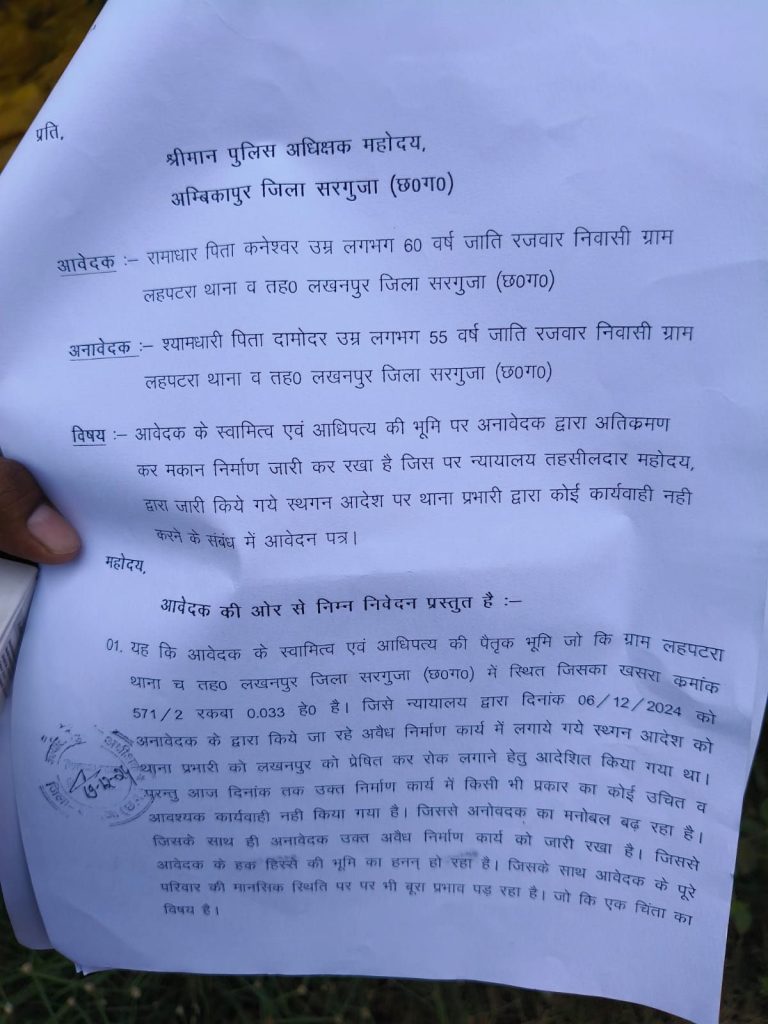 प्रति,
श्रीमान पुलिस अधिक्षक महोदय,
अम्बिकापुर जिला सरगुजा (छ0ग0)
आवेदक :– रामाधार पिता कनेश्वर उम्र लगभग 60 वर्ष जाति रजवार निवासी ग्राम
लहपटरा थाना व तह0 लखनपुर जिला सरगुजा (छ0ग0)
अनावेदक :– श्यामधारी पिता दामोदर उम्र लगभग 55 वर्ष जाति रजवार निवासी ग्राम
लहपटरा थाना व तह0 लखनपुर जिला सरगुजा (छ0ग0)
विषय :– आवेदक के स्वामित्व एवं आधिपत्य की भूमि पर अनावेदक द्वारा अतिक्रमण
कर मकान निर्माण जारी कर रखा है जिस पर न्यायालय तहसीलदार महोदय,
द्वारा जारी किये गये स्थगन आदेश पर थाना प्रभारी द्वारा कोई कार्यवाही नही
करने के संबंध में आवेदन पत्र।
महोदय,
आवेदक की ओर से निम्न निवेदन प्रस्तुत है :–
01. यह कि आवेदक के स्वामित्व एवं आधिपत्य की पैतृक भूमि जो कि ग्राम लहपटरा
थाना च तह0 लखनपुर जिला सरगुजा (छ0ग0) में स्थित जिसका खसरा कमांक
571/2 रकबा 0.033 हे0 है। जिसे न्यायालय द्वारा दिनांक 06/12/2024 को
अनावेदक के द्वारा किये जा रहे अवैध निर्माण कार्य में लगाये गये स्थ्गन आदेश को
थाना प्रभारी को लखनपुर को प्रेषित कर रोक लगाने हेतु आदेशित किया गया था।
परन्तु आज दिनांक तक उक्त निर्माण कार्य में किसी भी प्रकार का कोई उचित व
आवश्यक कार्यवाही नही किया गया है। जिससे अनोवदक् का मनोबल बढ़ रहा है।
जिसके साथ ही अनावेदक उक्त अवैध निर्माण कार्य को जारी रखा है। जिससे
आवेदक के हक हिस्से की भूमि का हनन् हो रहा है। जिसके साथ आवेदक के पूरे
परिवार की मानसिक स्थिति पर पर भी बूरा प्रभाव पड़ रहा है। जो कि एक चिंता का
विषय है।